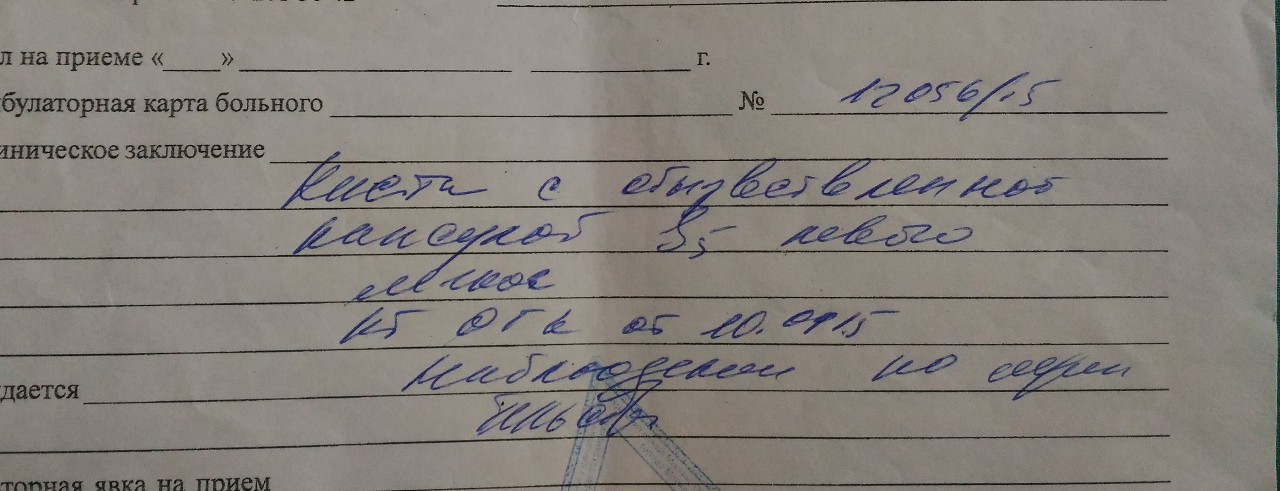 л на приеме «____»____________________ ____________ г.
булаторная карта больного ____________________ № 12056/15
иническое заключение
Киста с обызвествленной
капсулой S5 левого
легкого
КТ ОГК от 10.09.15
дается Наблюдение по
торная явка на прием